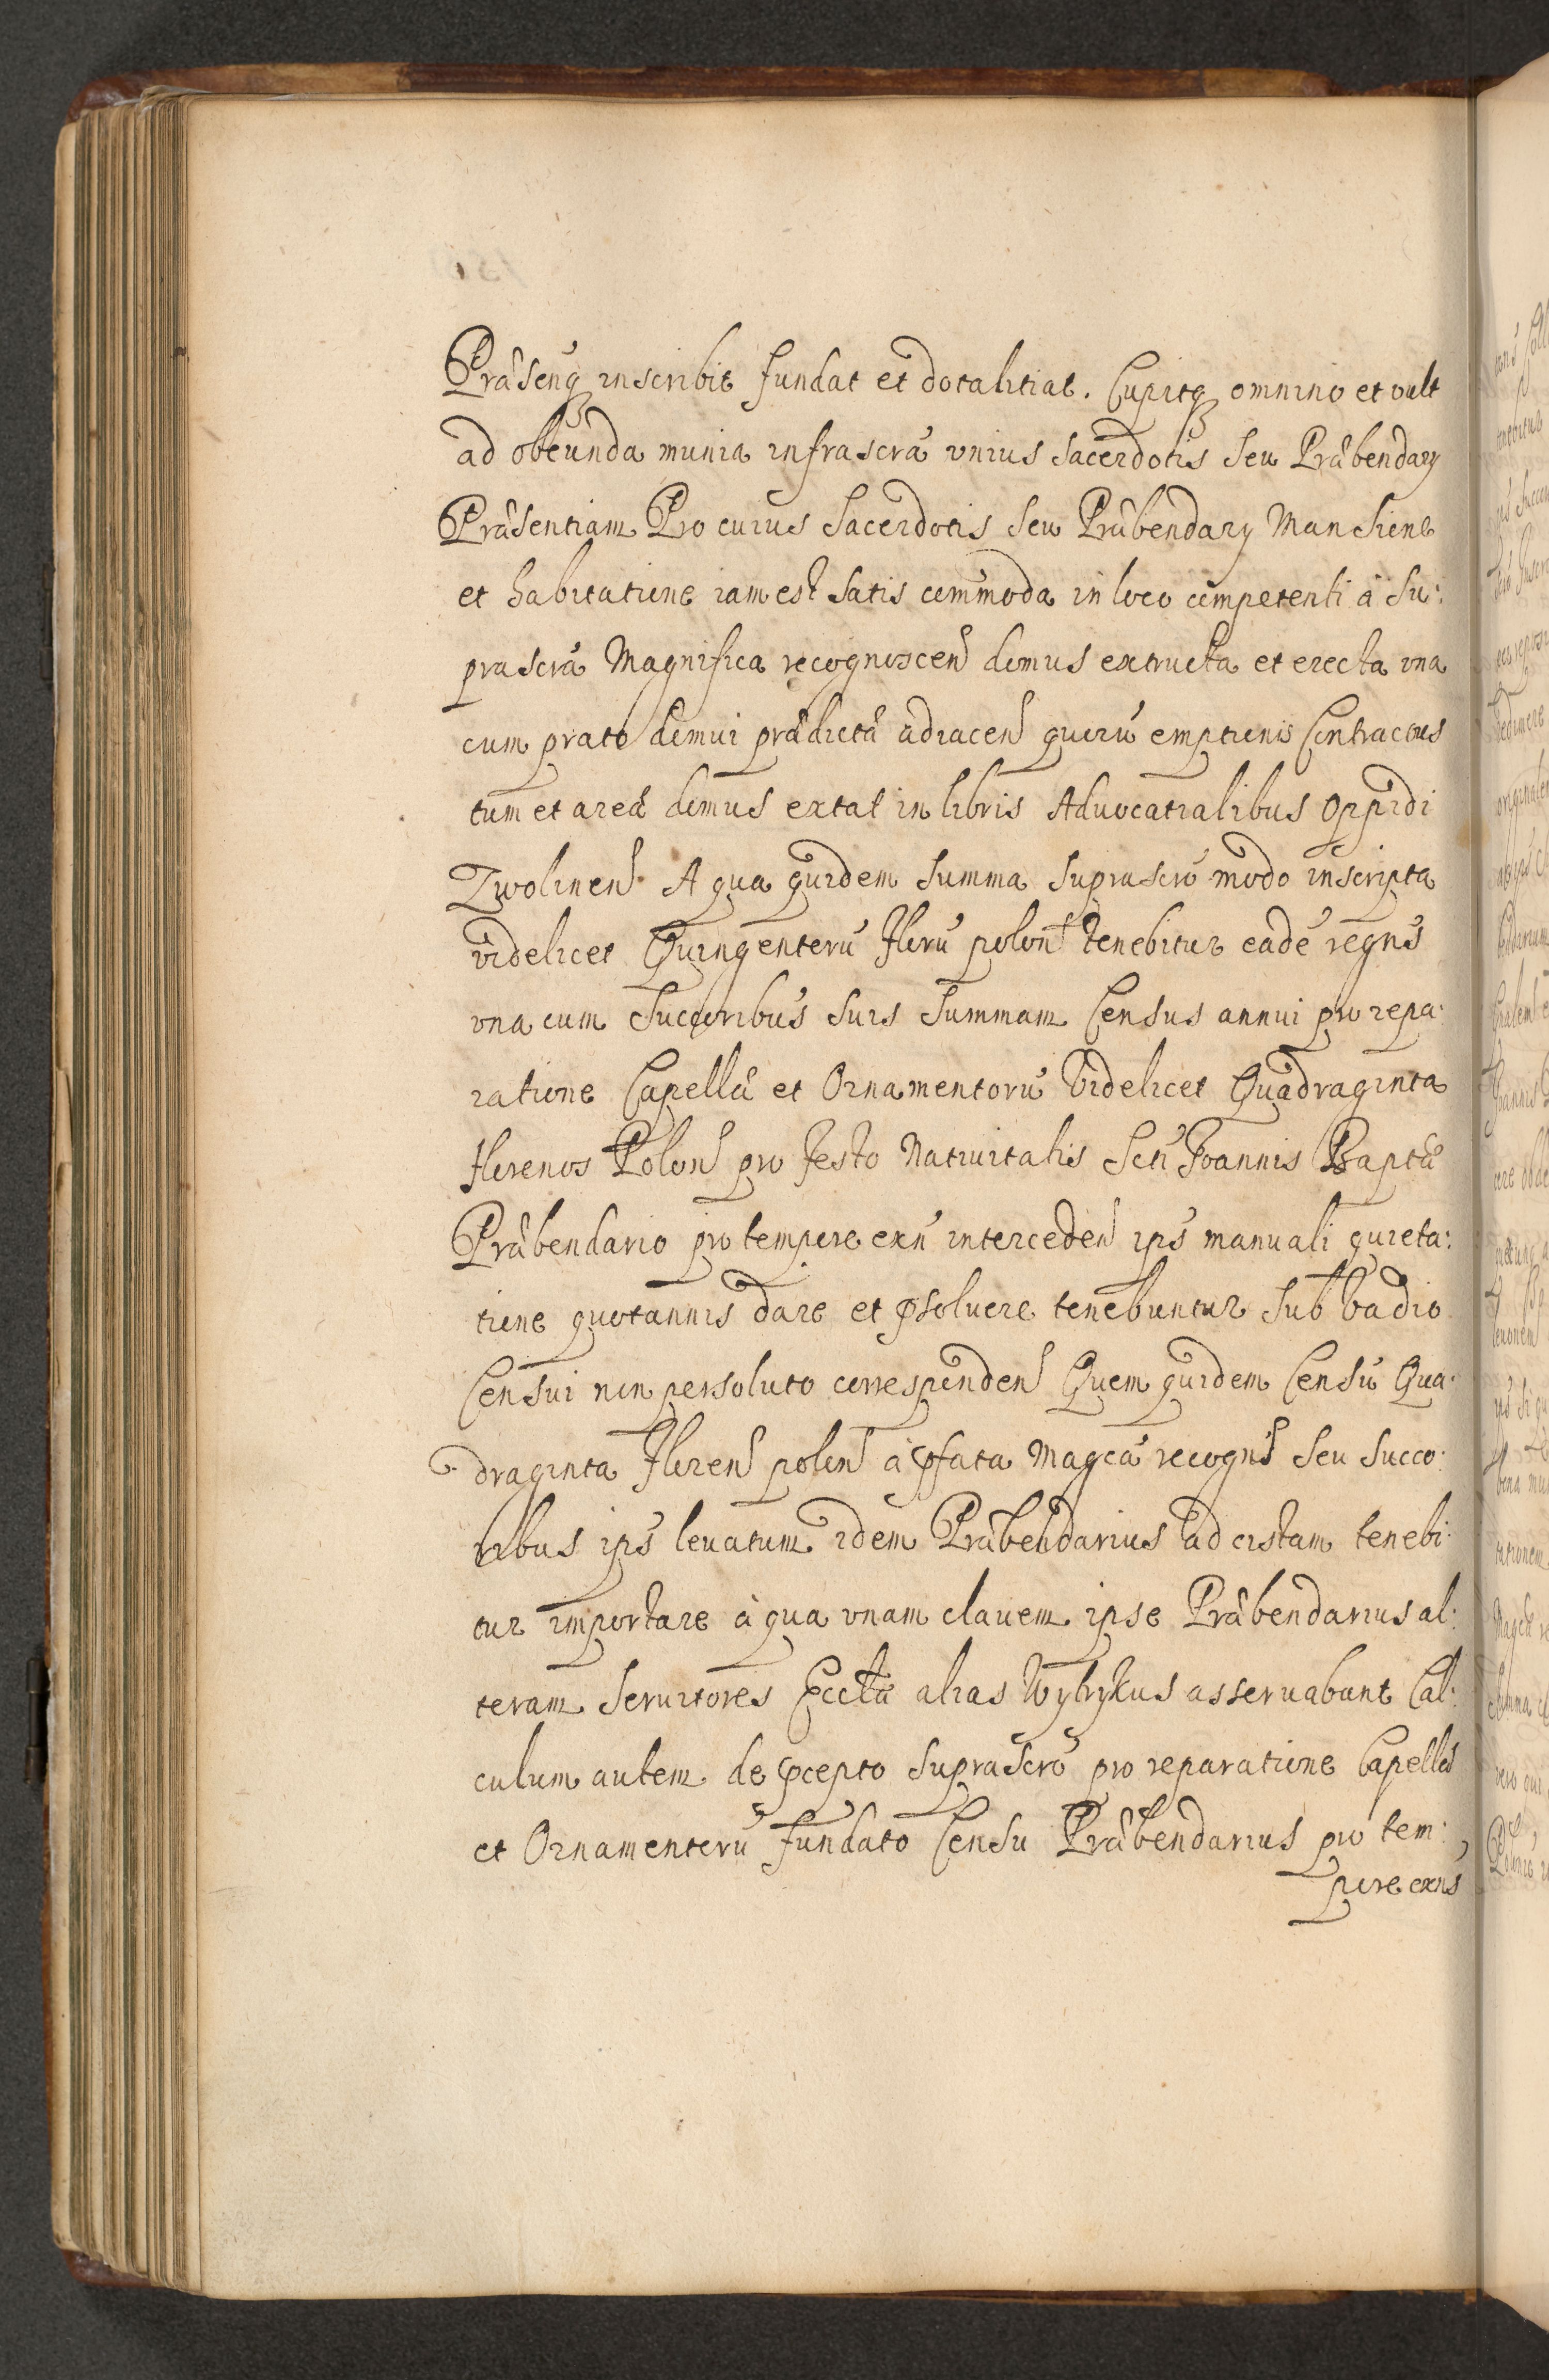 Præsenq inscribit fundat et dotalitiat. Cupitq omnino et vult
ad obeunda munia infrascrã vnius Sacerdotis Seu Præbendarÿ
Præsentiam Pro cuius Sacerdotis Seu Præbendarÿ Mansione
et habitatione iam est satis commoda in loco competenti à Su:
prascrã Magnifica recognoscen domus extructa et erecta vna
cum prato domui prædictæ adiacen quorũ emptionis Contractus
tum et areæ domus extat in libris Aduocatialibus Oppidi
Zwolinen. A qua quidem Summa Suprascrõ modo inscripta
videlicet Quingentorũ flórũ polon tenebitur eadẽ regns
vna cum Succoribus Suis Summam Census annui pro repa:
ratione Capellæ et Ornamentorũ Videlicet Quadraginta
florenos Polon pro festo Natiuitatis Scti Joannis Baptæ
Præbendario pro tempore exñ interceden ips manuali quieta:
tione quotannis dare et psoluere tenebuntur Sub Vadio
Censui non persoluto corresponden Quem quidem Censũ Qua:
draginta floren polon à pfata Magcã recogns Seu Succo:
ribus ips leuatum idem Præbendarius ad cistam tenebi:
tur importare à qua vnam clauem ipse Præbendarius al:
teram Seruitores Ecclæ alias Wytrykus asseruabunt Cal:
culum autem de pcepto Suprascrõ pro reparatione Capellæ
et Ornamentorũ fundato Censu Præbendarius pro tem:
pore exns